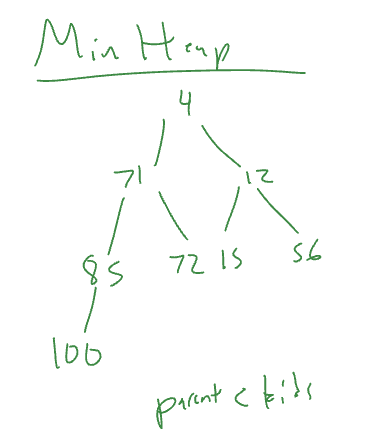 Min Heap
4
71 12
85 72 15 56
100
parent < kids